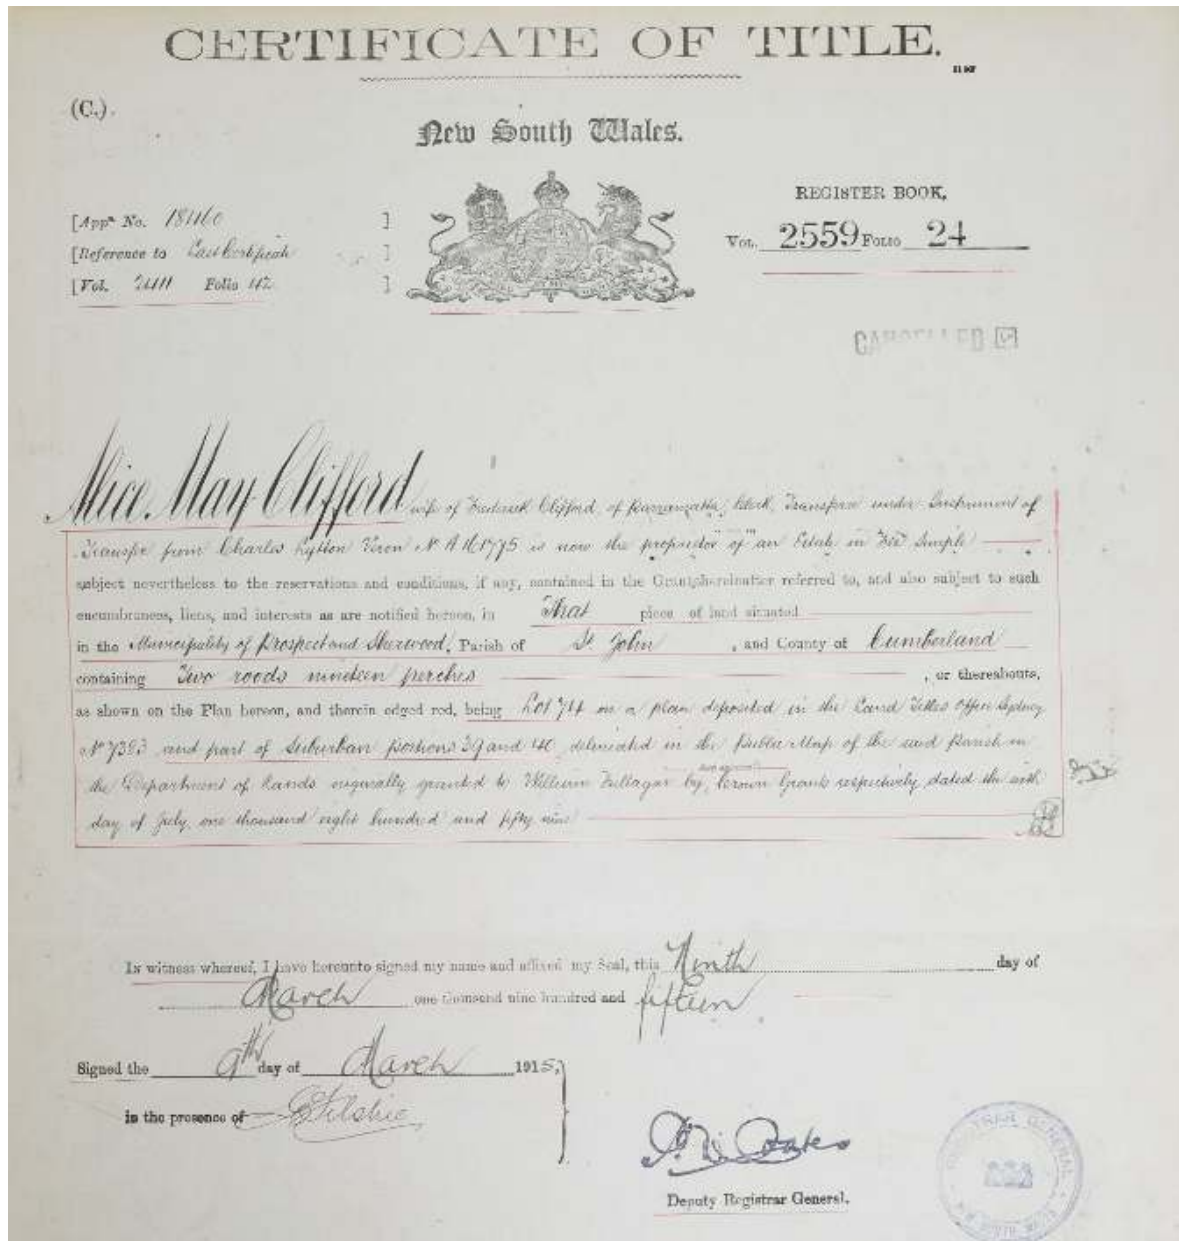 CERTIFICATE OF TITLE.
(C.)
New South Wales.
REGISTER BOOK,
[Appn. No. 18460 ]
[Reference to Last Certificate ]
[Vol. Folio 42 ]
Vol. 2559 Folio 24
CANCELLED
Alice May Clifford wife of Frederick Clifford of Parramatta, Clerk, Transferee under Instrument of
Transfer from Charles Lytton Veron No. A is now the proprietor of an Estate in Fee Simple
subject nevertheless to the reservations and conditions, if any, contained in the Grant hereinafter referred to, and also subject to such
encumbrances, liens, and interests as are notified hereon, in That piece of land situated
in the Municipality of Prospect and Sherwood, Parish of St. John, and County of Cumberland
containing Two roods nineteen perches, or thereabouts,
as shown on the Plan hereon, and therein edged red, being Lot 74 on a plan deposited in the Land Titles Office Sydney
No. and part of Suburban portions 39 and 40 delineated in the Public Map of the said Parish in
the Department of Lands originally granted to William Fullagar by Crown Grants respectively dated the
day of July one thousand eight hundred and fifty nine
In witness whereof, I have hereunto signed my name and affixed my Seal, this Ninth day of
March one thousand nine hundred and fifteen
Signed the 9th day of March 1915,
in the presence of
Deputy Registrar General.
REGISTRAR GENERAL